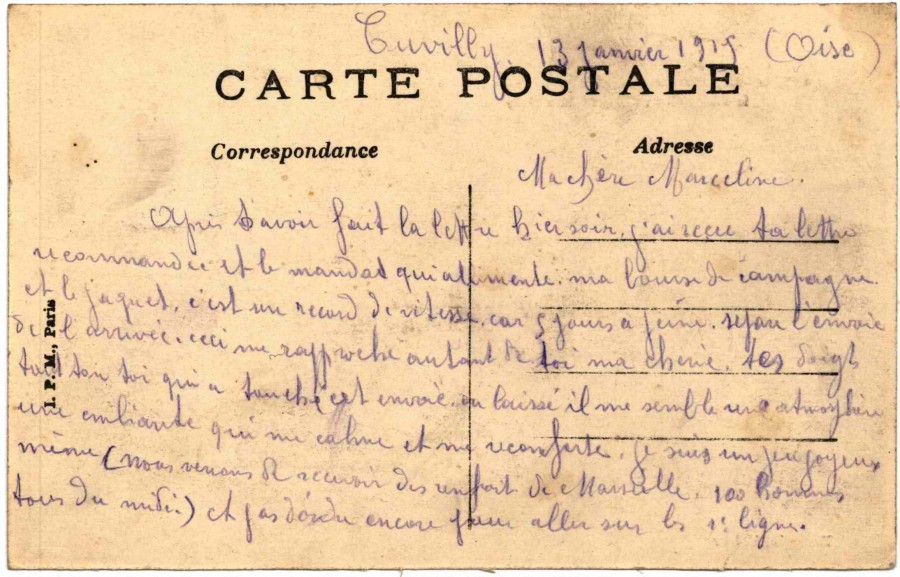 Cuvilly, 13 janvier 1915 (Oise)
CARTE POSTALE
Correspondance
Adresse
Ma chère Marceline.
Apris d'avoir fait la lettre hier soir, j'ai recu ta lettre
recommandée et le mandat qui alemente ma bourse de campagne
et le paquet, c'est un record de vitesse, car 5 jours a peine separe l'envoie
de l'arrivée. ceci me rapproche autant de toi ma cherie. tes doigts
tout ton toi qui a touché cet envoie on laissé il me semble une atmosphère
une embiante qui me calme et me reconforte. je suis un peu joyeux
même (nous venons de recevoir des renfort de Marseille. 100 hommes
tous du midi.) et pas d'ordre encore pour aller sur les 1e ligne.
I. P. M., Paris